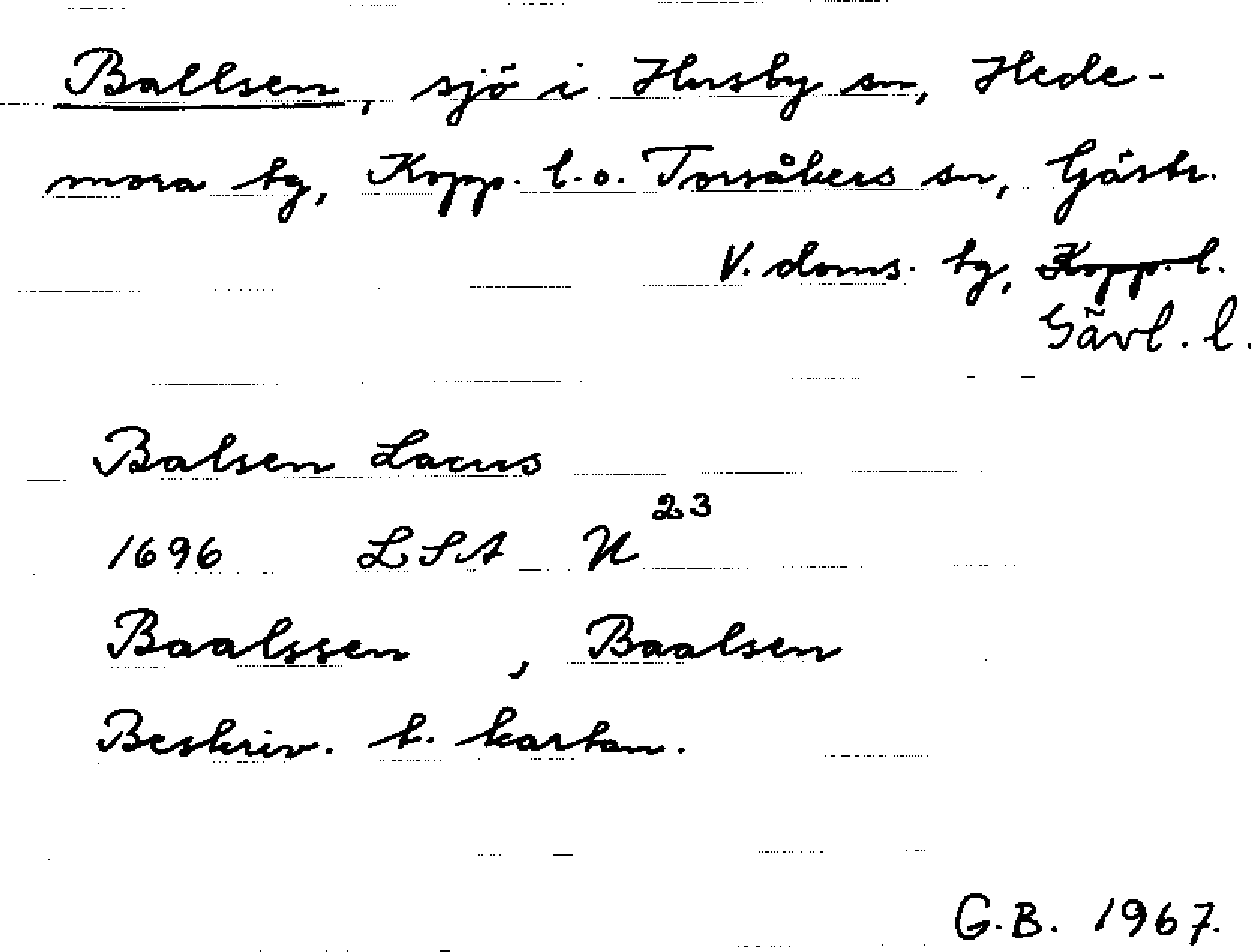 Ballsen, sjö i Husby sn, Hede-
mora tg, Kopp. l. o. Torsåkers sn, Gästr.
V. doms. tg, Kopp. l.
Gävl. l.
Balsen Lacus
1696 LSA U 23
Baalssen , Baalsen
Beskriv. t. kartan.
G.B. 1967.